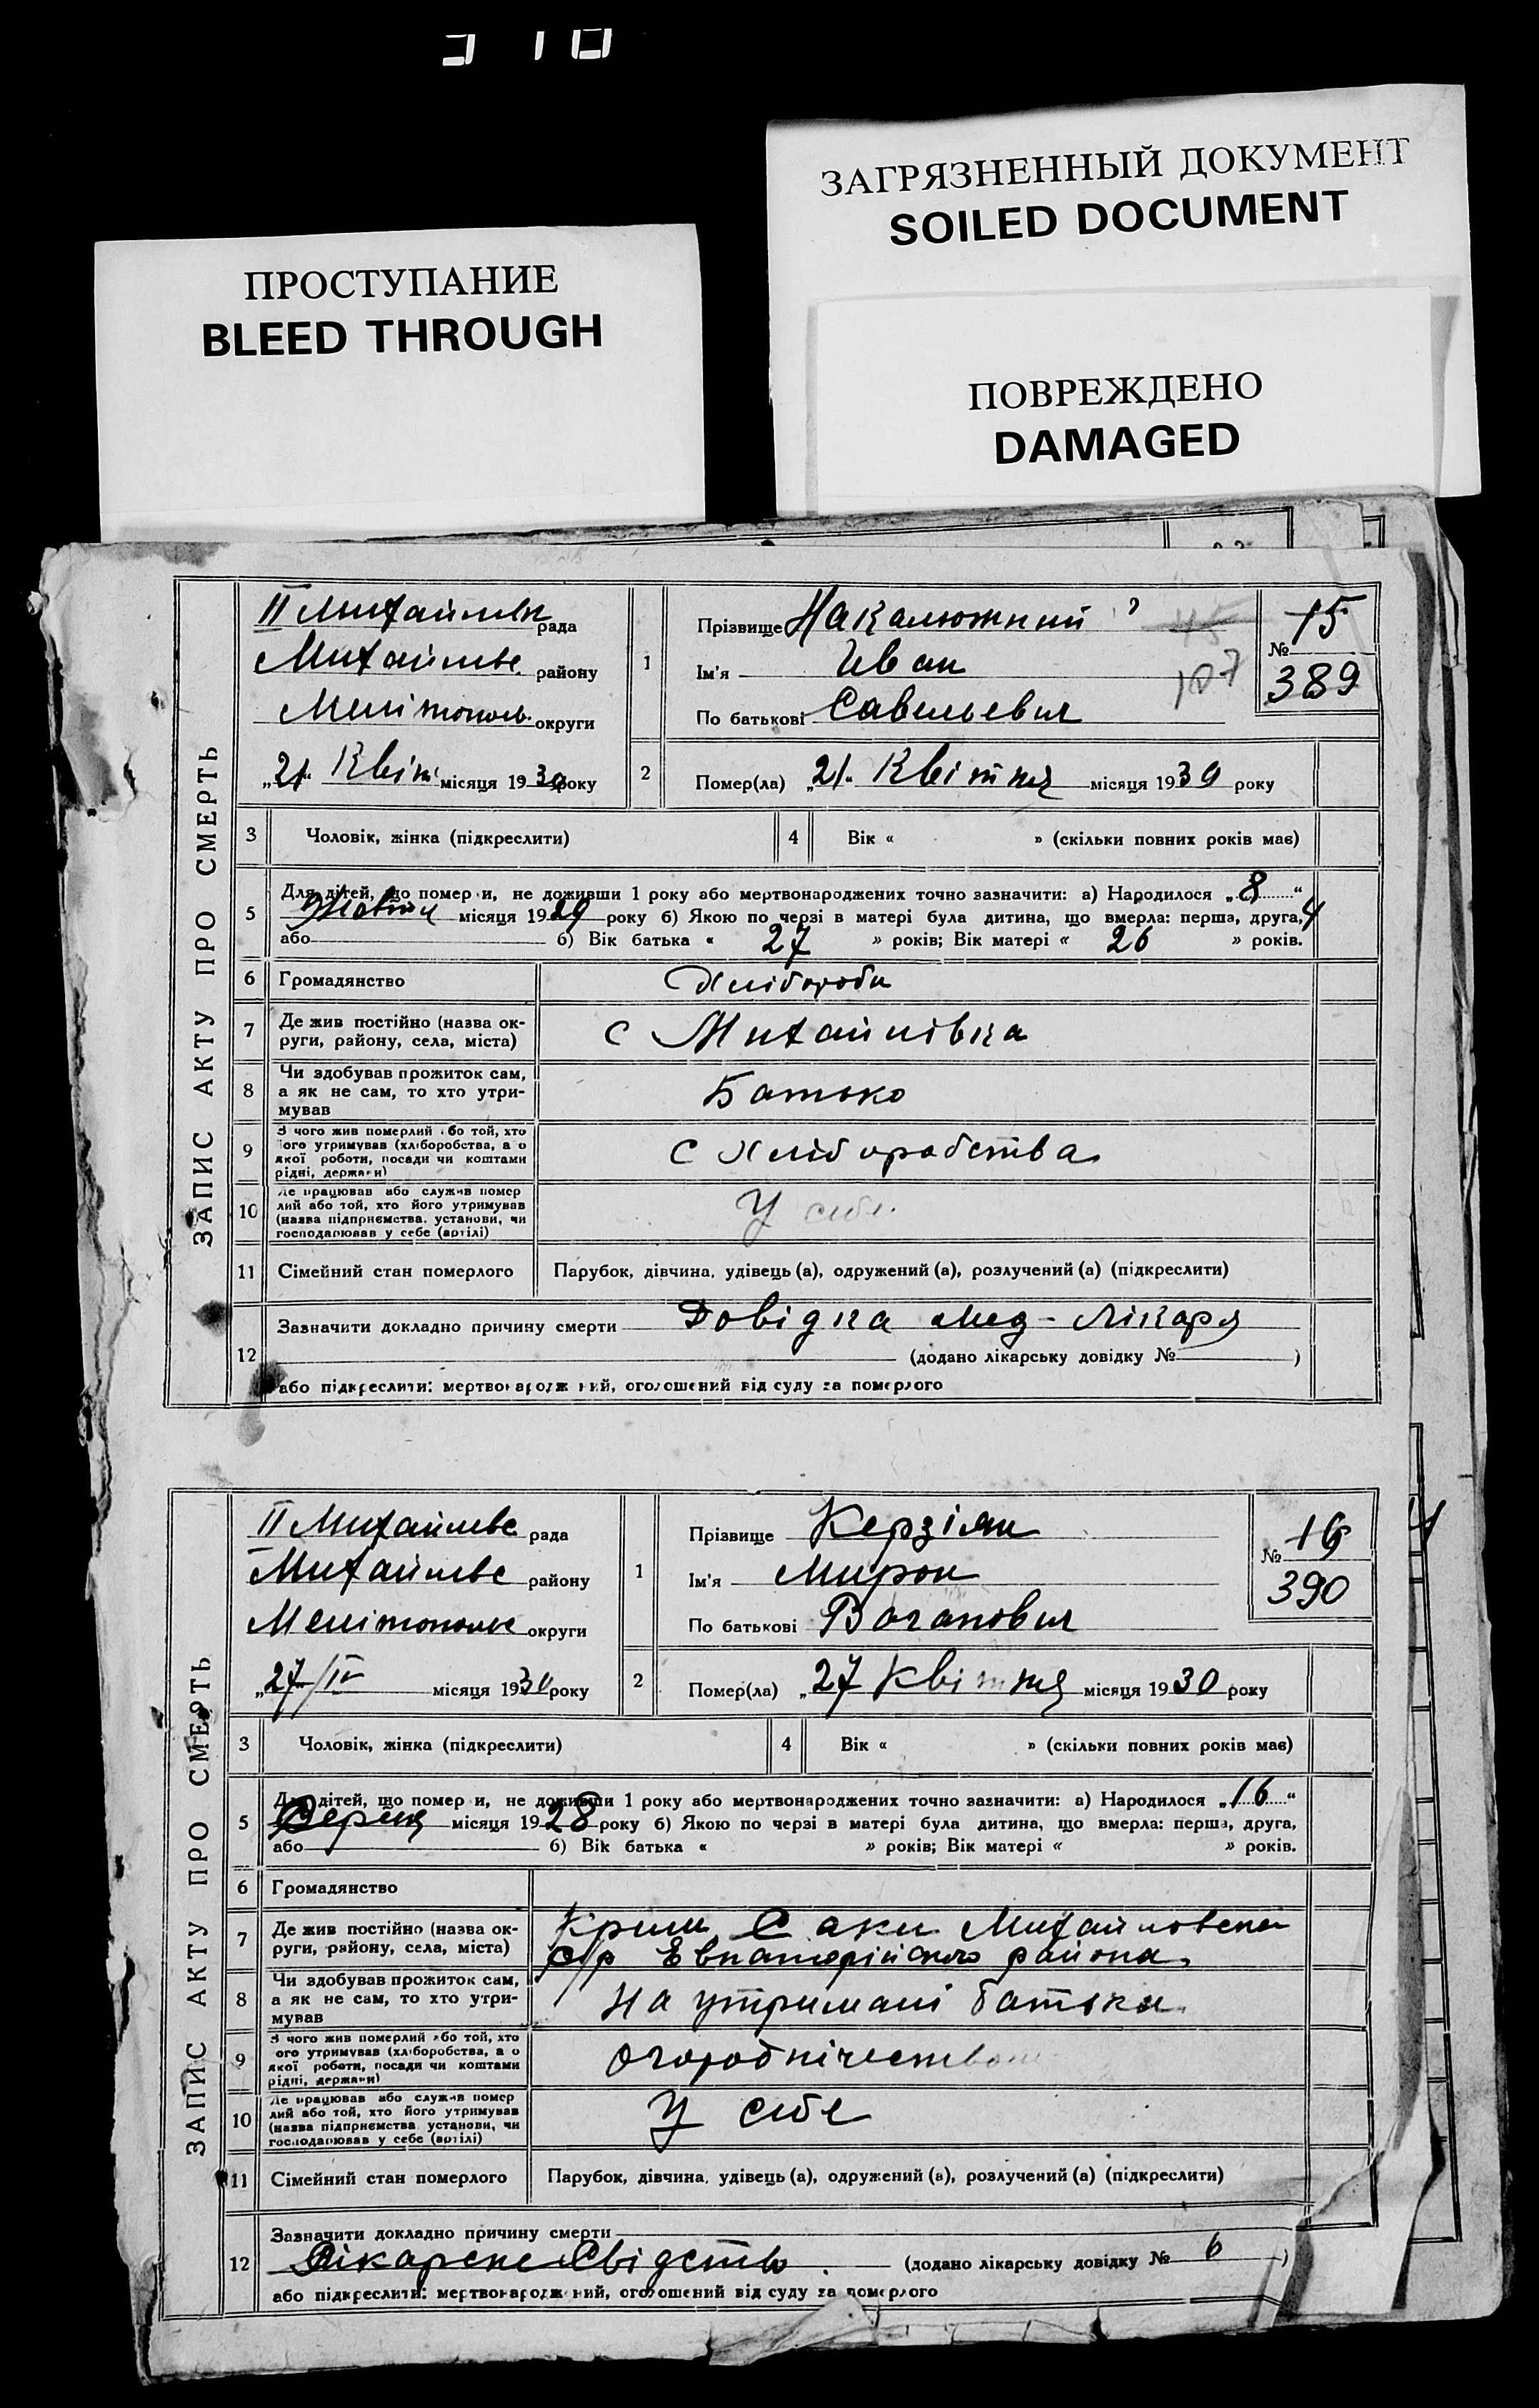 ЗАГРЯЗНЕННЫЙ ДОКУМЕНТ
SOILED DOCUMENT
ПРОСТУПАНИЕ
BLEED THROUGH
ПОВРЕЖДЕНО
DAMAGED
ЗАПИС АКТУ ПРО СМЕРТЬ
II Михайлівк рада
Михайлівс. району
Мелітополь. округи
„21“ Квітн місяця 1930 року
1
Прізвище Накалюжний
Ім'я Иван
По батькові Савельевич
107
№ 15
389
2
Помер(ла) „21“ Квітня місяця 1930 року
3 Чоловік, жінка (підкреслити)
4 Вік « » (скільки повних років має)
5 Для дітей, що помер и, не доживши 1 року або мертвонароджених точно зазначити: а) Народилося „8“
Жовтня місяця 1929 року б) Якою по черзі в матері була дитина, що вмерла: перша, друга, 4
або б) Вік батька « 27 » років; Вік матері « 26 » років.
6 Громадянство Хлібороби
7 Де жив постійно (назва ок-
руги, району, села, міста) с Михайлівка
8 Чи здобував прожиток сам,
а як не сам, то хто утри-
мував Батько
9 З чого жив померлий або той, хто
його утримував (хліборобства, а о
якої роботи, посади чи коштами
рідні, держави) С Хліборобства
10 Де працював або служив помер
лий або той, хто його утримував
(назва підприємства. установи, чи
господарював у себе (артілі) У себе.
11 Сімейний стан померлого Парубок, дівчина, удівець (а), одружений (а), розлучений (а) (підкреслити)
12 Зазначити докладно причину смерти Довідка мед-Лікаря
(додано лікарську довідку № )
або підкреслити: мертвонародж ний, оголошений від суду за померлого
ЗАПИС АКТУ ПРО СМЕРТЬ
II Михайлівс рада
Михайлівс району
Мелітопольс округи
„27/IV місяця 1930 року
1
Прізвище Керзіян
Ім'я Мирон
По батькові Ваганович
№ 16
390
2
Помер(ла) „27 Квітня місяця 1930 року
3 Чоловік, жінка (підкреслити)
4 Вік « » (скільки повних років має)
5 Для дітей, що помер и, не доживши 1 року або мертвонароджених точно зазначити: а) Народилося „16“
Серпня місяця 1928 року б) Якою по черзі в матері була дитина, що вмерла: перша, друга,
або б) Вік батька « » років; Вік матері « » років.
6 Громадянство
7 Де жив постійно (назва ок-
руги, району, села, міста) Крим Саки Михайловскої
с/р Евпаторійского района.
8 Чи здобував прожиток сам,
а як не сам, то хто утри-
мував На утримані батька
9 З чого жив померлий або той, хто
ого утримував (хліборобства, а о
якої роботи, посади чи коштами
рідні, держави) Огороднічеством
10 Де працював або служив помер
лий або той, хто його утримував
(назва підприємства установи, чи
господарював у себе (артілі) У себе
11 Сімейний стан померлого Парубок, дівчина, удівець (а), одружений (а), розлучений (а) (підкреслити)
12 Зазначити докладно причину смерти
Лікарске Свідство. (додано лікарську довідку № 6 )
або підкреслити: мертвонародж ний, оголошений від суду за померлого